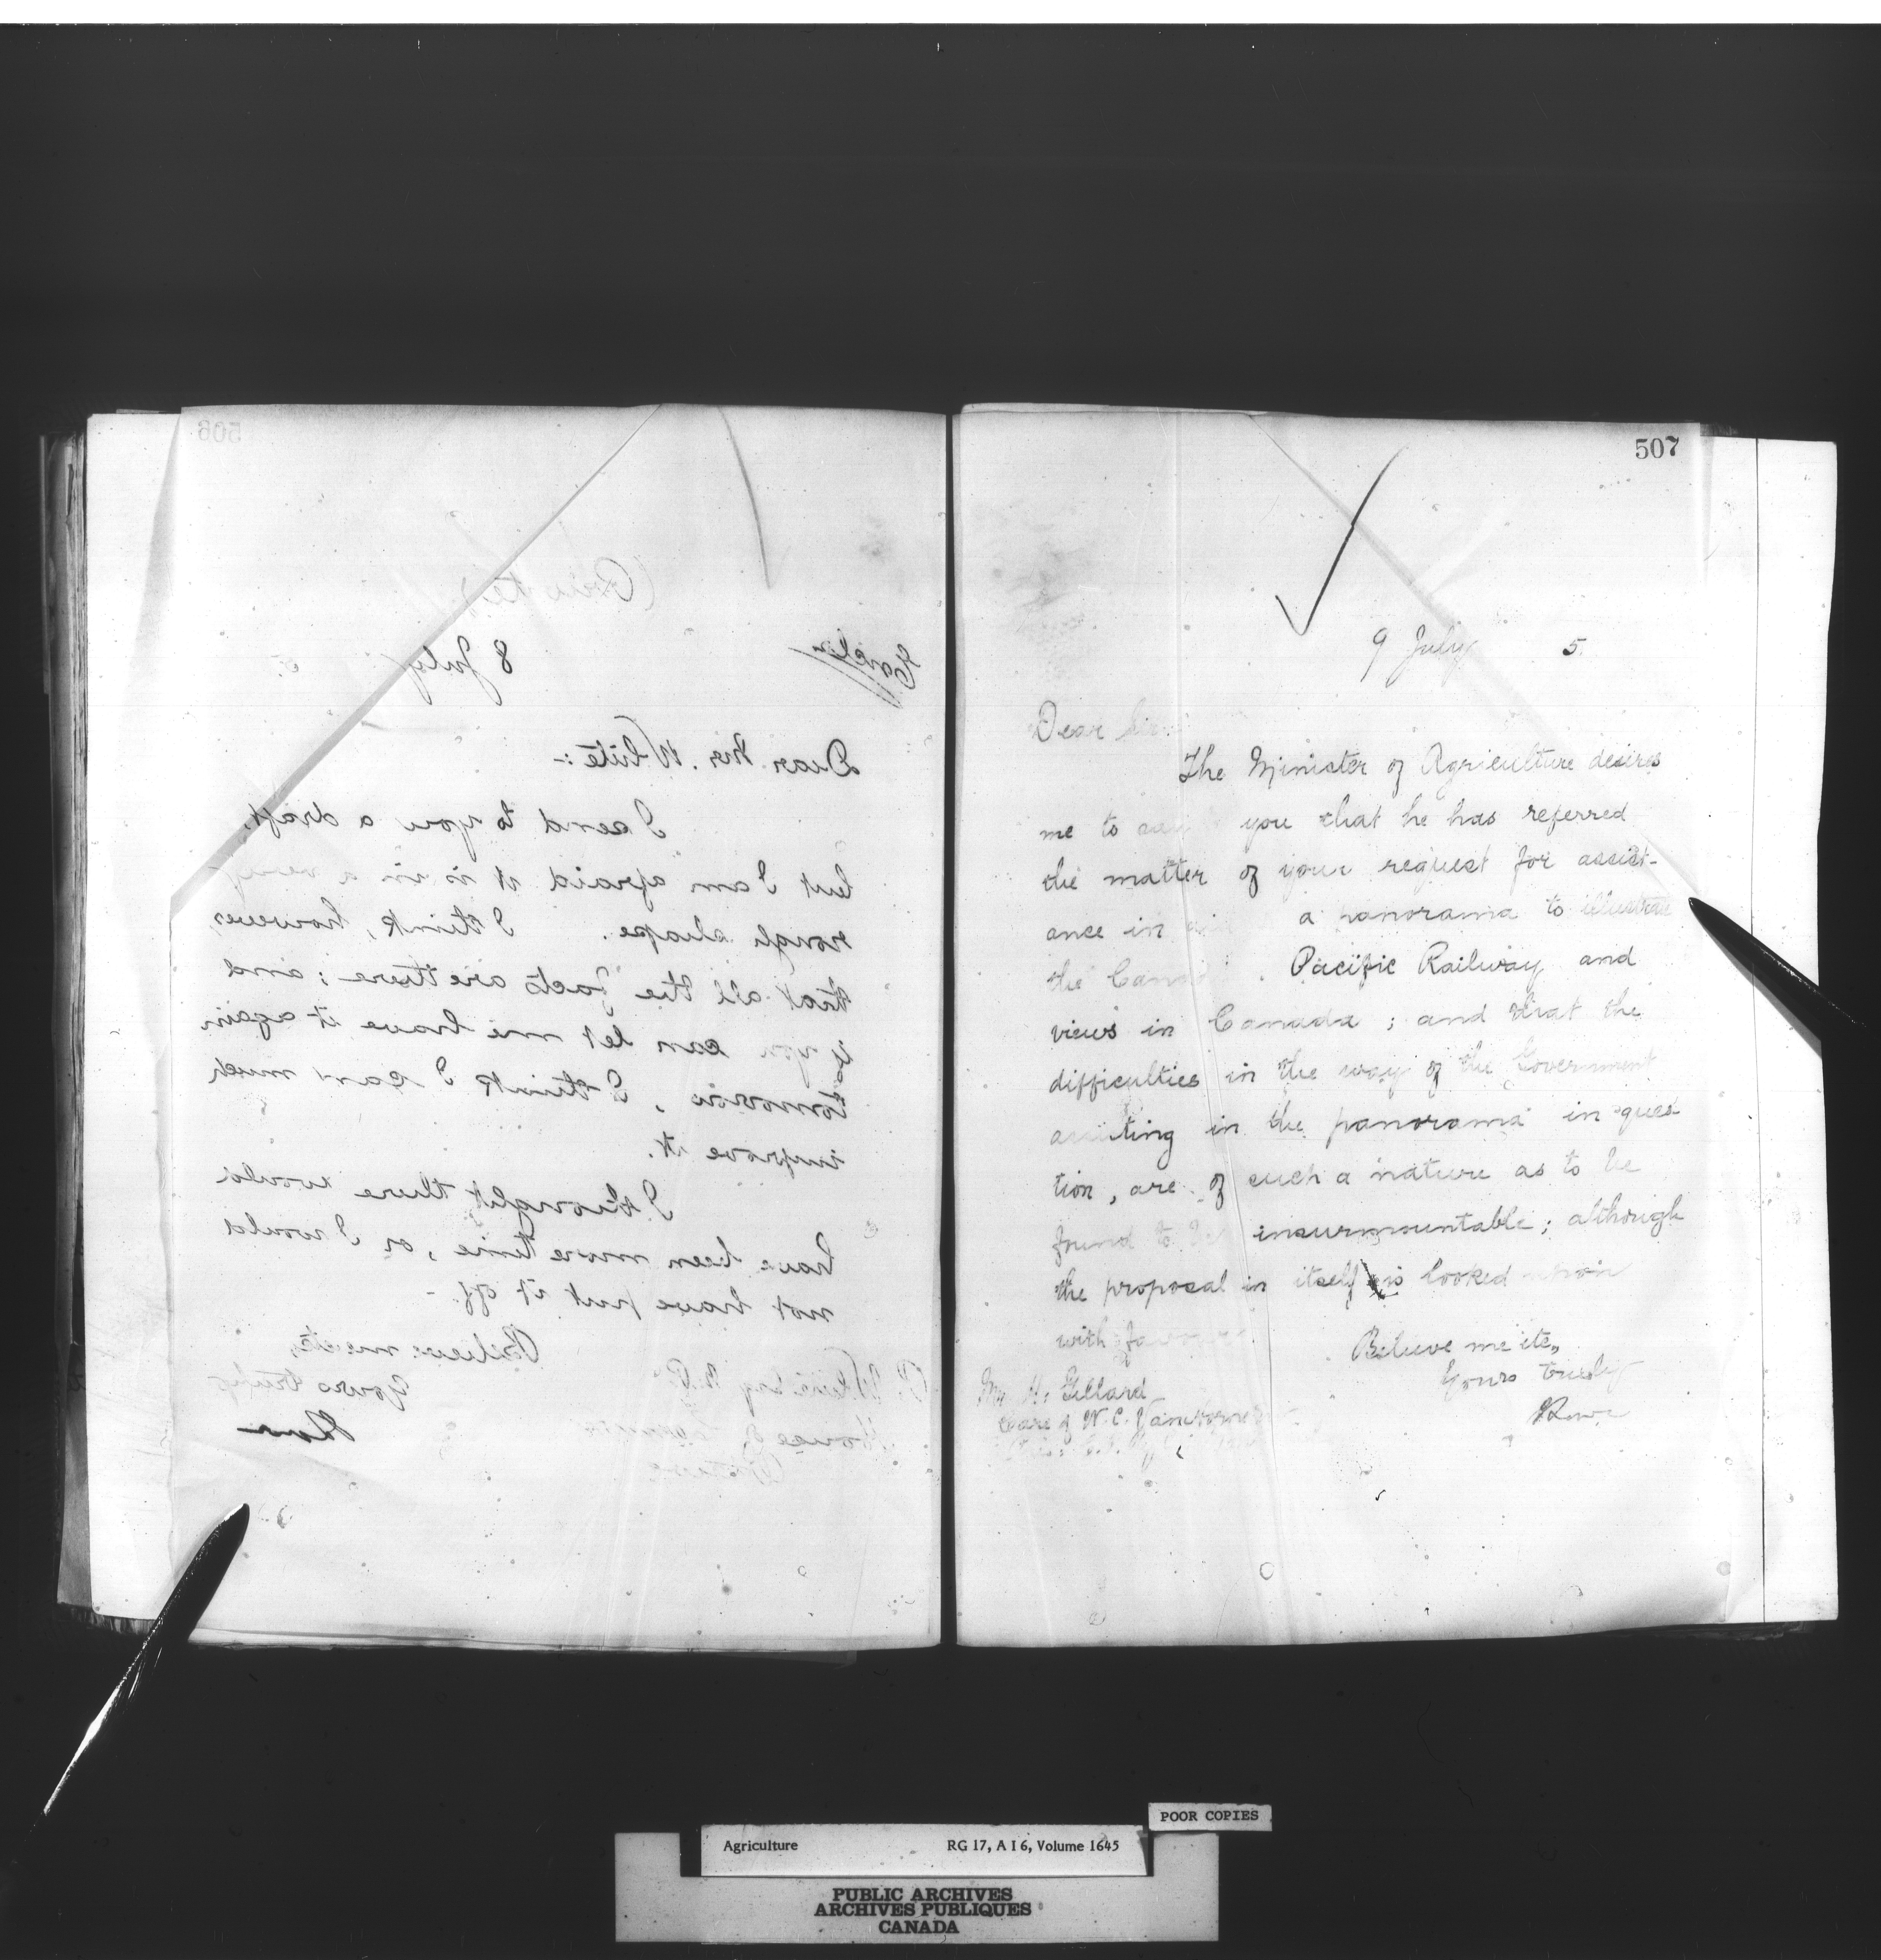 506
(Private)
8 July 5.
Dear Mr. White:-
I send to you a draft,
but I am afraid it is in a very
rough shape. I think, however,
that all the facts are there; and
if you can let me have it again
tomorrow, I think I can much
improve it.
I thought there would
have been more time, or I would
not have put it off.-
Believe me etc,
Yours truly
House of
Ottawa
507
9 July 5.
Dear Sir
The Minister of Agriculture desires
me to say you that he has referred
the matter of your request for assist-
ance in a panorama to illustrate
the Canad Pacific Railway and
views in Canada; and that the
difficulties in the way of the Government
assisting in the panorama in ques
tion, are of such a nature as to be
found to be insurmountable; although
the proposal in itself is looked upon
with favour
Believe me etc,,
Yours truly
Mr H.
Care of W. C. Van Horne
POOR COPIES
Agriculture RG 17, A I 6, Volume 1645
PUBLIC ARCHIVES
ARCHIVES PUBLIQUES
CANADA